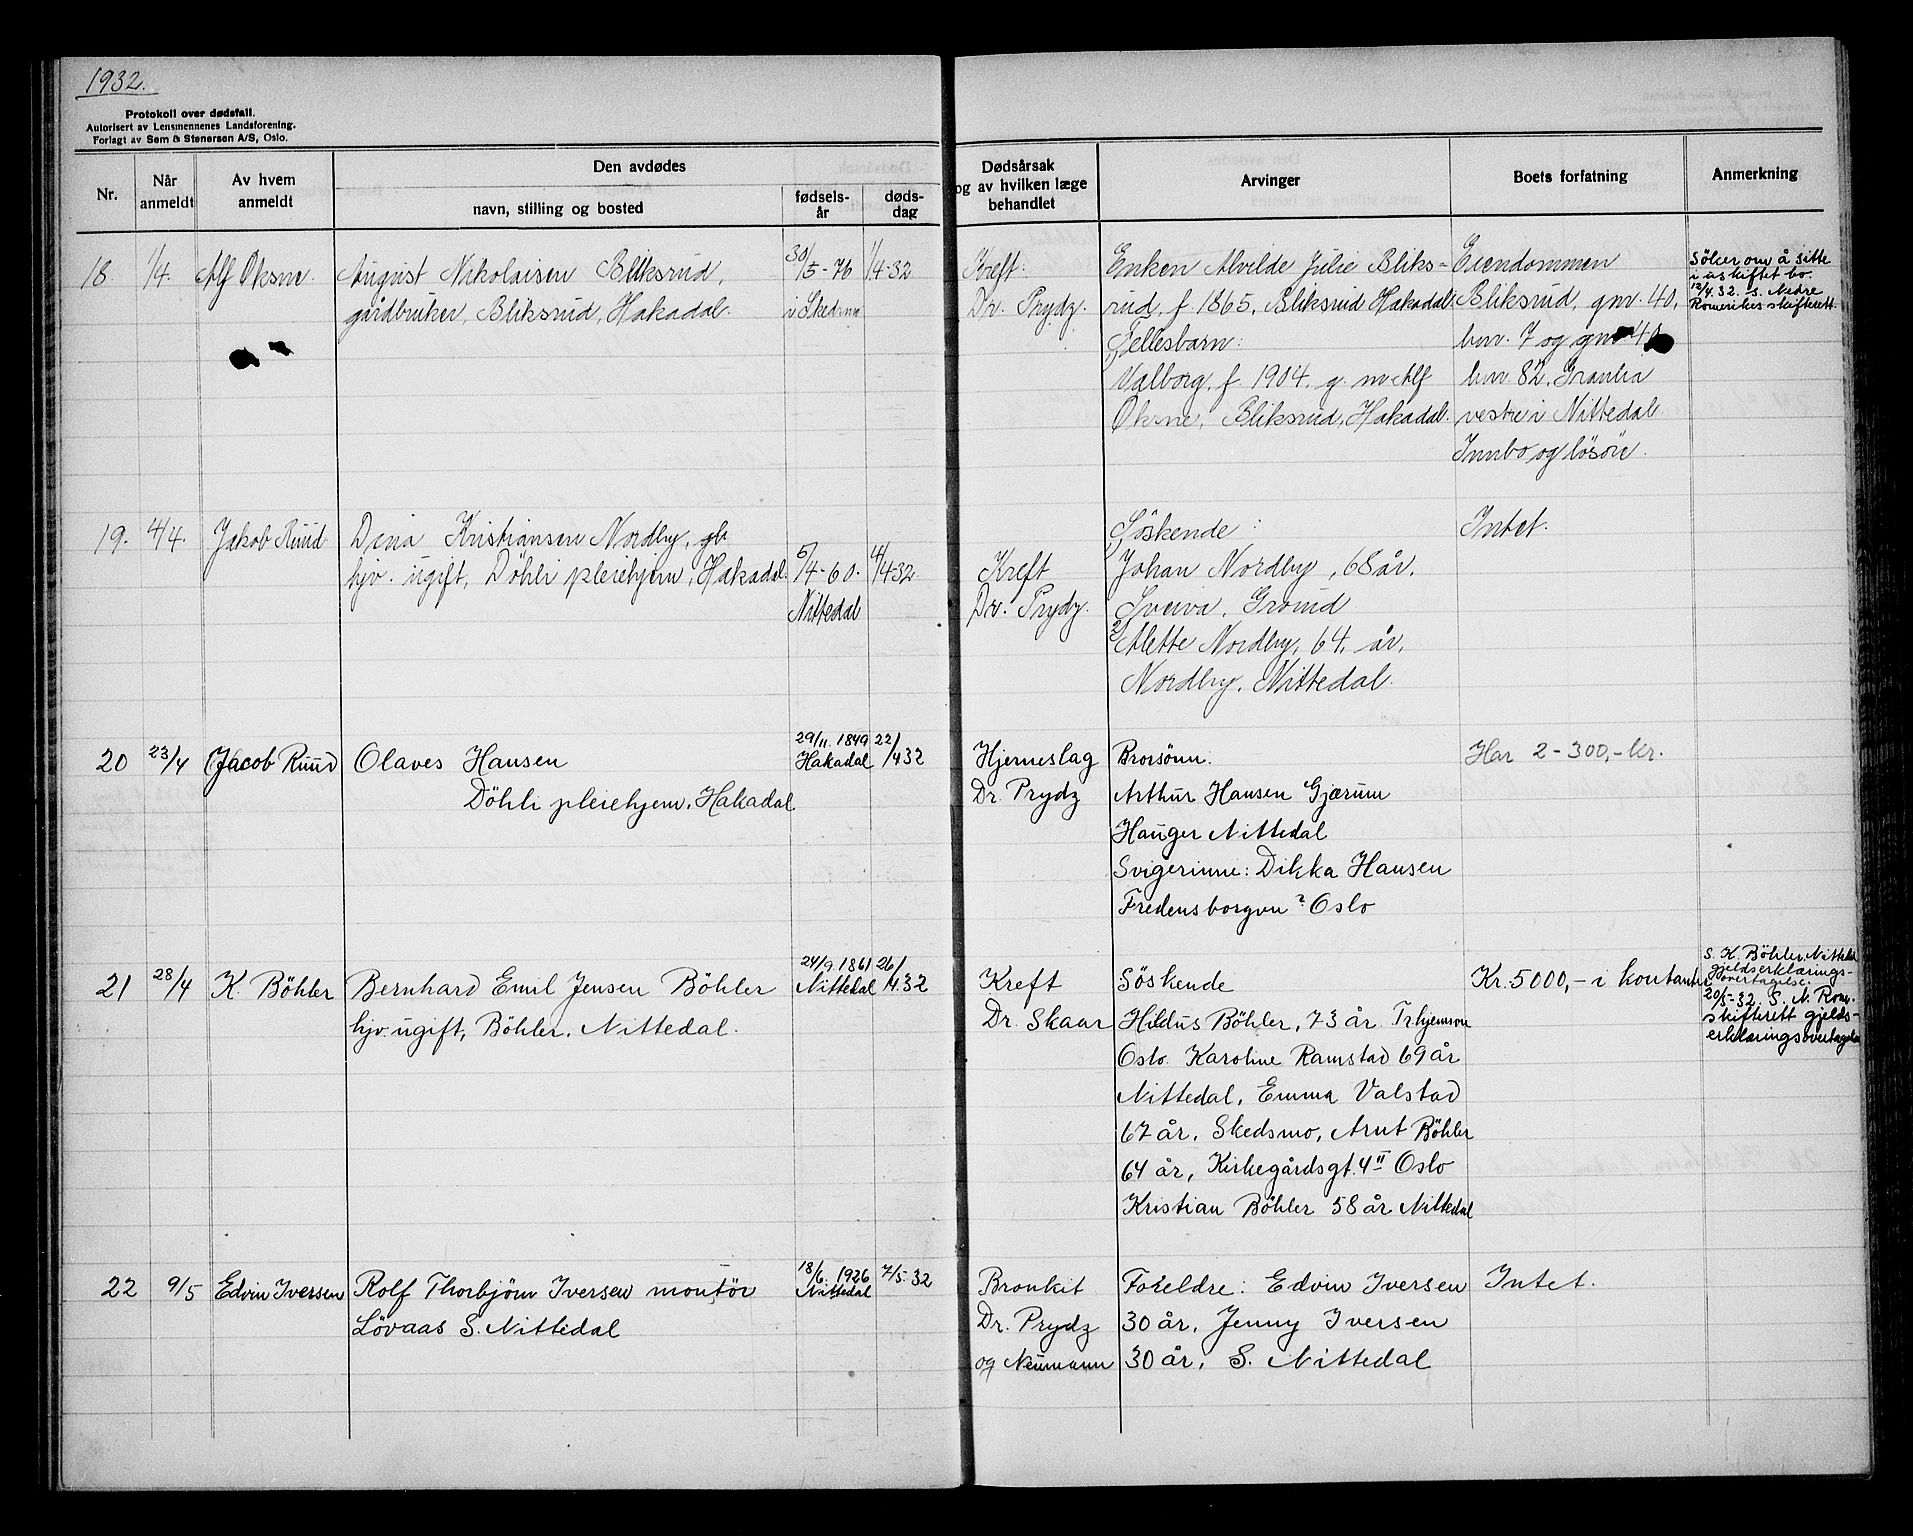 1932.
Protokoll over dødsfall.
Autorisert av Lensmennenes Landsforening.
Forlagt av Sem & Stenersen A/S, Oslo.
Nr.
Når anmeldt
Av hvem anmeldt
Den avdødes
navn, stilling og bosted
fødsels-
år
døds-
dag
Dødsårsak
og av hvilken læge
behandlet
Arvinger
Boets forfatning
Anmerkning
18 1/4. Alf Øksne. August Nikolaisen Bliksrud, 30/5-76 1/4-32
gårdbruker, Bliksrud, Hakadal. i Skedsmo
Kreft.
Dr. Prydz.
Enken Alvilde Julie Bliks-
rud, f. 1865, Bliksrud Hakadal
Fellesbarn:
Valborg, f. 1904. g. m. Alf
Øksne, Bliksrud, Hakadal.
Eiendommen
Bliksrud, gnr. 40,
bnr. 7 og gnr 40
bnr 82, Granlia
vestre i Nittedal
Innbo og løsøre.
Söker om å sitte
i uskiftet bo.
12/4.32. s. Nedre
Romerikes skifterett.
19. 4/4. Jakob Ruud Dina Kristiansen Nordby, gb.
hjv. ugift, Döhli pleiehjem, Hakadal. 5/4-60. 4/4-32
Nittedal
Kreft
Dr. Prydz.
Söskende:
Johan Nordby, 68 år.
Grorud
2) Alette Nordby, 64, år,
Nordby, Nittedal.
Intet.
20 23/4 Jacob Ruud Olaves Hansen 29/11.1849 22/4 32
Döhli pleiehjem, Hakadal Hakadal
Hjerneslag
Dr. Prydz
Brorsönn:
Arthur Hansen Gjærum
Hauger Nittedal
Svigerinne: Dikka Hansen
Fredensborgvn ? Oslo
Har 2-300,- kr.
21 28/4 K. Böhler Bernhard Emil Jensen Böhler 24/9.1861 26/4.32
hjv. ugift, Böhler, Nittedal. Nittedal
Kreft
Dr. Skaar
Söskende
Hildus Böhler, 73 år Trhjemsvn
Oslo. Karoline Ramstad 69 år
Nittedal, Emma Valstad
67 år, Skedsmo, Arnt Böhler
64 år, Kirkegårdsgt. 4 II Oslo
Kristian Böhler 58 år Nittedal
Kr. 5000,- i kontanter
S. K. Böhler, Nittedal
gjeldserklærings-
overtagelse.
20/5-32. S. N. Rom.
skifterett gjelds-
erklæringsovertagelse
22 9/5 Edvin Iversen Rolf Thorbjörn Iversen montör 18/6.1926 7/5.32
Lövaas S. Nittedal Nittedal
Bronkit
Dr. Prydz
og Neumann
Foreldre: Edvin Iversen
30 år, Jenny Iversen
30 år, S. Nittedal
Intet.